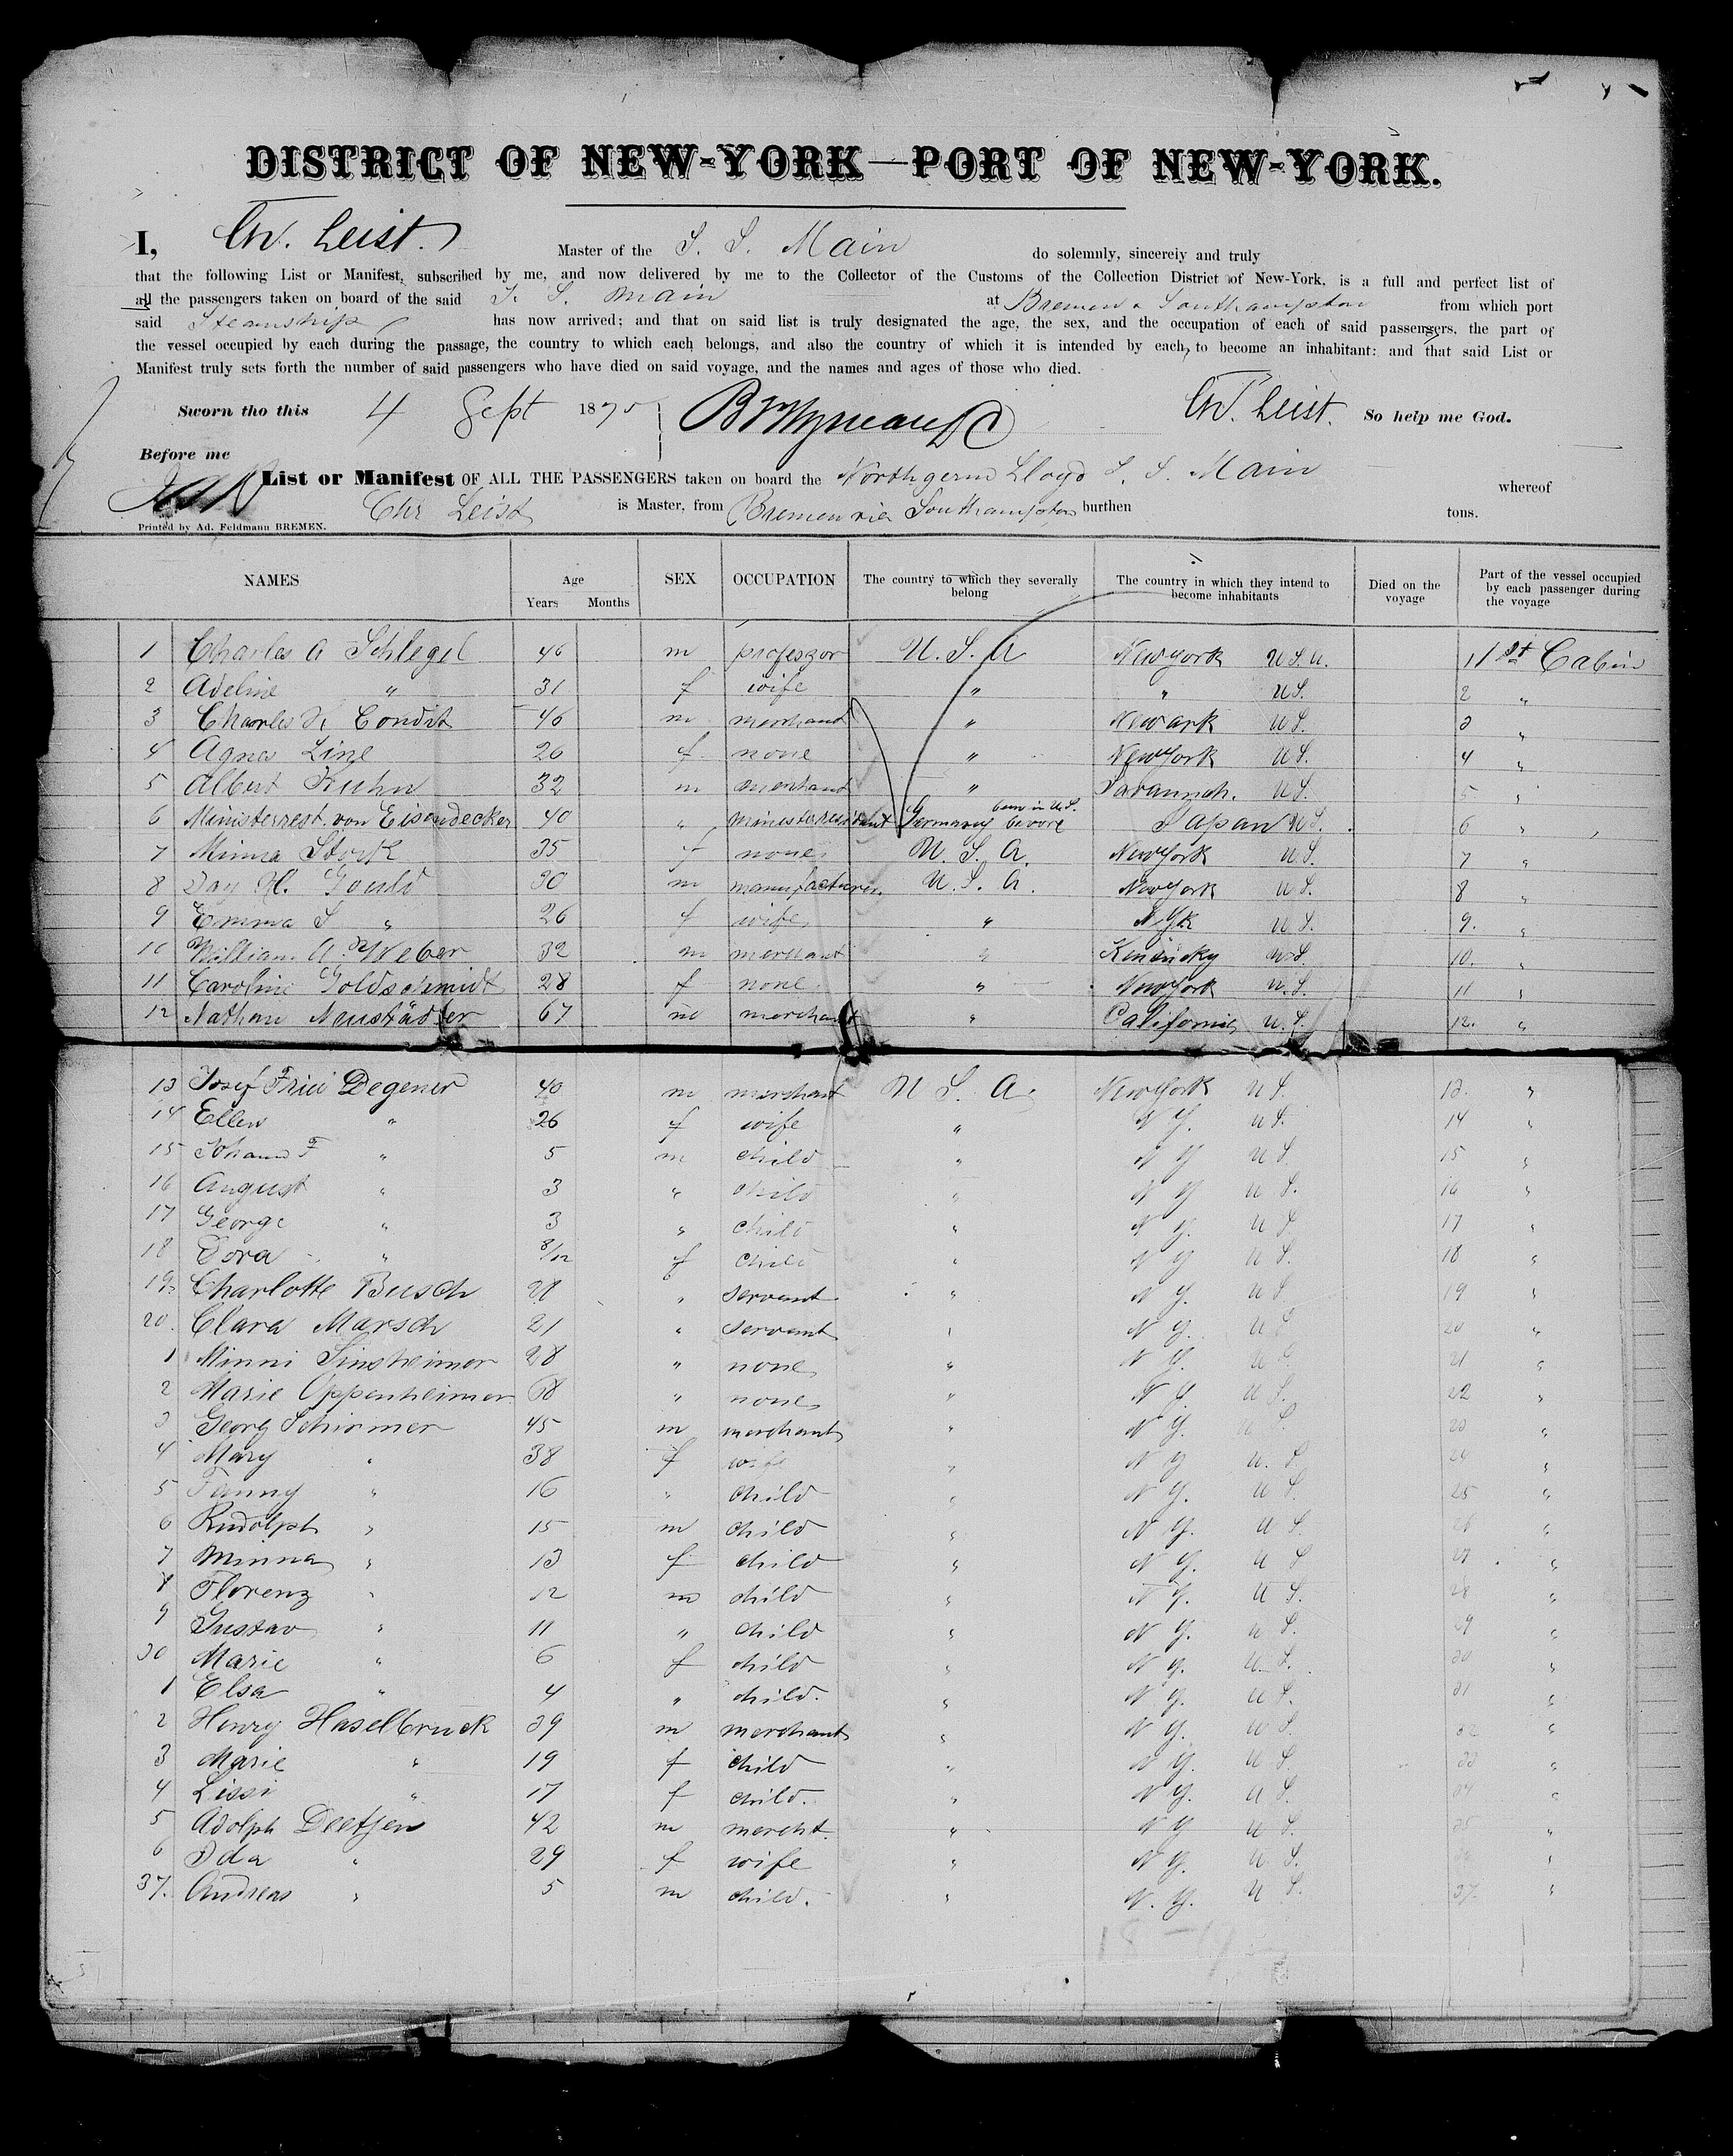 DISTRICT OF NEW-YORK—PORT OF NEW-YORK.
I, Chr. Leist. Master of the S. S. Main do solemnly, sincerely and truly
that the following List or Manifest, subscribed by me, and now delivered by me to the Collector of the Customs of the Collection District of New-York, is a full and perfect list of
all the passengers taken on board of the said S. S. Main at Bremen & Southampton from which port
said Steamship has now arrived; and that on said list is truly designated the age, the sex, and the occupation of each of said passengers, the part of
the vessel occupied by each during the passage, the country to which each belongs, and also the country of which it is intended by each, to become an inhabitant: and that said List or
Manifest truly sets forth the number of said passengers who have died on said voyage, and the names and ages of those who died.
Sworn tho this 4 Sept 1875 Chr. Leist. So help me God.
Before me
List or Manifest OF ALL THE PASSENGERS taken on board the Northgerm Lloyd S. S. Main whereof
Chr Leist is Master, from Bremen via Southampton burthen tons.
Printed by Ad. Feldmann BREMEN.
NAMES Age Years Months SEX OCCUPATION The country to which they severally belong The country in which they intend to become inhabitants Died on the voyage Part of the vessel occupied by each passenger during the voyage
1 Charles A Schlegel 46 m professor U. S. A Newyork U.S.A. 1 1st Cabin
2 Adeline " 31 f wife " " U.S. 2 "
3 Charles H. Condit 46 m merchant " Newark U.S. 3 "
4 Agnes Line 26 f none " Newyork U.S. 4 "
5 Albert Kuhn 32 m merchant " Savannah. U.S. 5 "
6 Ministerrest. von Eisendecker 40 " Ministerresident Germany been in U.S. bevore Japan U.S. 6 "
7 Minna Stork 35 f none U. S. A. Newyork U.S. 7 "
8 Day H. Gould 30 m manufacturer U. S. A. Newyork U.S. 8 "
9 Emma S " 26 f wife " N.Yk U.S. 9. "
10 William A. Weber 32 m merchant " Kentucky U.S. 10. "
11 Caroline Goldschmidt 28 f none " Newyork U.S. 11 "
12 Nathan Neustädter 67 m merchant " California U.S. 12. "
13 Josef Frici Degener 40 m merchant U S A. Newyork U S. 13. "
14 Ellen " 26 f wife " N Y. U S. 14 "
15 Johann F " 5 m child " N Y U S. 15 "
16 August " 3 " child " N Y U S. 16 "
17 George " 3 " child " N Y. U S 17 "
18 Dora " 8/12 f child " N Y U S. 18 "
19. Charlotte Busch 21 " servant " N Y. U S 19 "
20. Clara Marsch 21 " servant " N Y. U S 20 "
1 Minni Sinsheimer 28 " none " N Y. U S. 21 "
2 Marie Oppenheimer 68 " none " N Y. U S. 22 "
3 Georg Schirmer 45 m merchant " N Y. U S. 23 "
4 Mary " 38 f wife " N Y U. S. 24 "
5 Fanny " 16 " child " N Y. U S. 25 "
6 Rudolph " 15 m child " N Y. U S. 26 "
7 Minna " 13 f child " N Y. U S 27 "
8 Florenz " 12 m child " N Y. U S. 28 "
9 Gustav " 11 " child " N Y. U S. 29 "
30 Marie " 6 f child " N Y. U. S. 30 "
1 Elsa " 4 " child. " N Y. U S. 31 "
2 Henry Haselbruck 39 m merchant " N Y. U S. 32 "
3 Marie " 19 f child " N Y. U S. 33 "
4 Lissi " 17 f child. " N Y. U S. 34 "
5 Adolph Deetjen 42 m mercht. " N Y U S. 35 "
6 Ida " 29 f wife " N Y. U S. "
37. Andreas " 5 m child. " N. Y. U S. 37. "